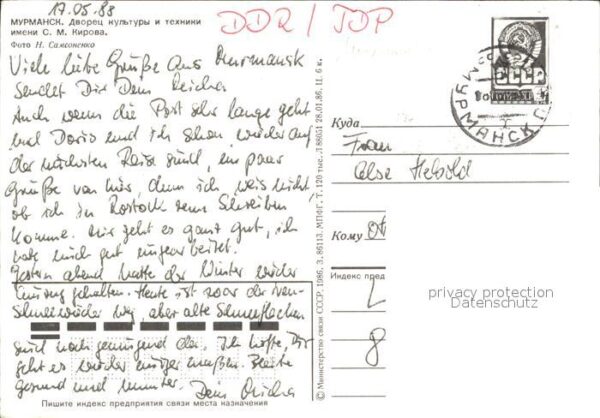 17.05.88
DDR / ГДР
МУРМАНСК. Дворец культуры и техники
имени С. М. Кирова.
Фото Н. Самсоненко
Viele liebe Grüße aus Murmansk
Sendet Dir Dein
Auch wenn die Post sehr lange geht
und Doris und ich schon wieder auf
der nächsten Reise sind, ein paar
Grüße von hier, denn ich weis nicht
ob ich in Rostock zum Schreiben
komme. Mir geht es ganz gut, ich
habe mich gut eingearbeitet.
Gestern abend hatte der Winter wieder
Einzug gehalten. Heute ist zwar der Neu-
Schnee wieder weg, aber alte Schneeflecken
sind noch genügend da. Ich hoffe, Dir
geht es wieder einiger maßen. Bleibe
gesund und munter. Dein
Пишите индекс предприятия связи места назначения
© Министерство связи СССР. 1986. З. 86113. МПФГ. Т. 120 тыс. Л88051 28.01.86. Ц. 6 к.
СССР
МУРМАНСК
Куда
Frau
Else
Кому
Индекс пред
L
8
privacy protection
Datenschutz